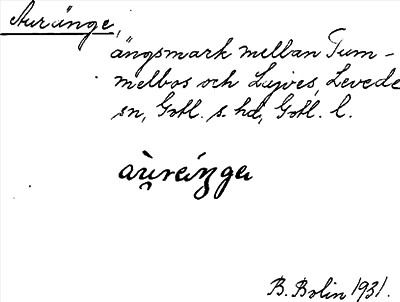 Auränge,
ängsmark mellan Tum-
melbos och Lajves, Levede
sn, Gotl. s. hd, Gotl. l.
au̯räŋga
B. Bolin 1931.